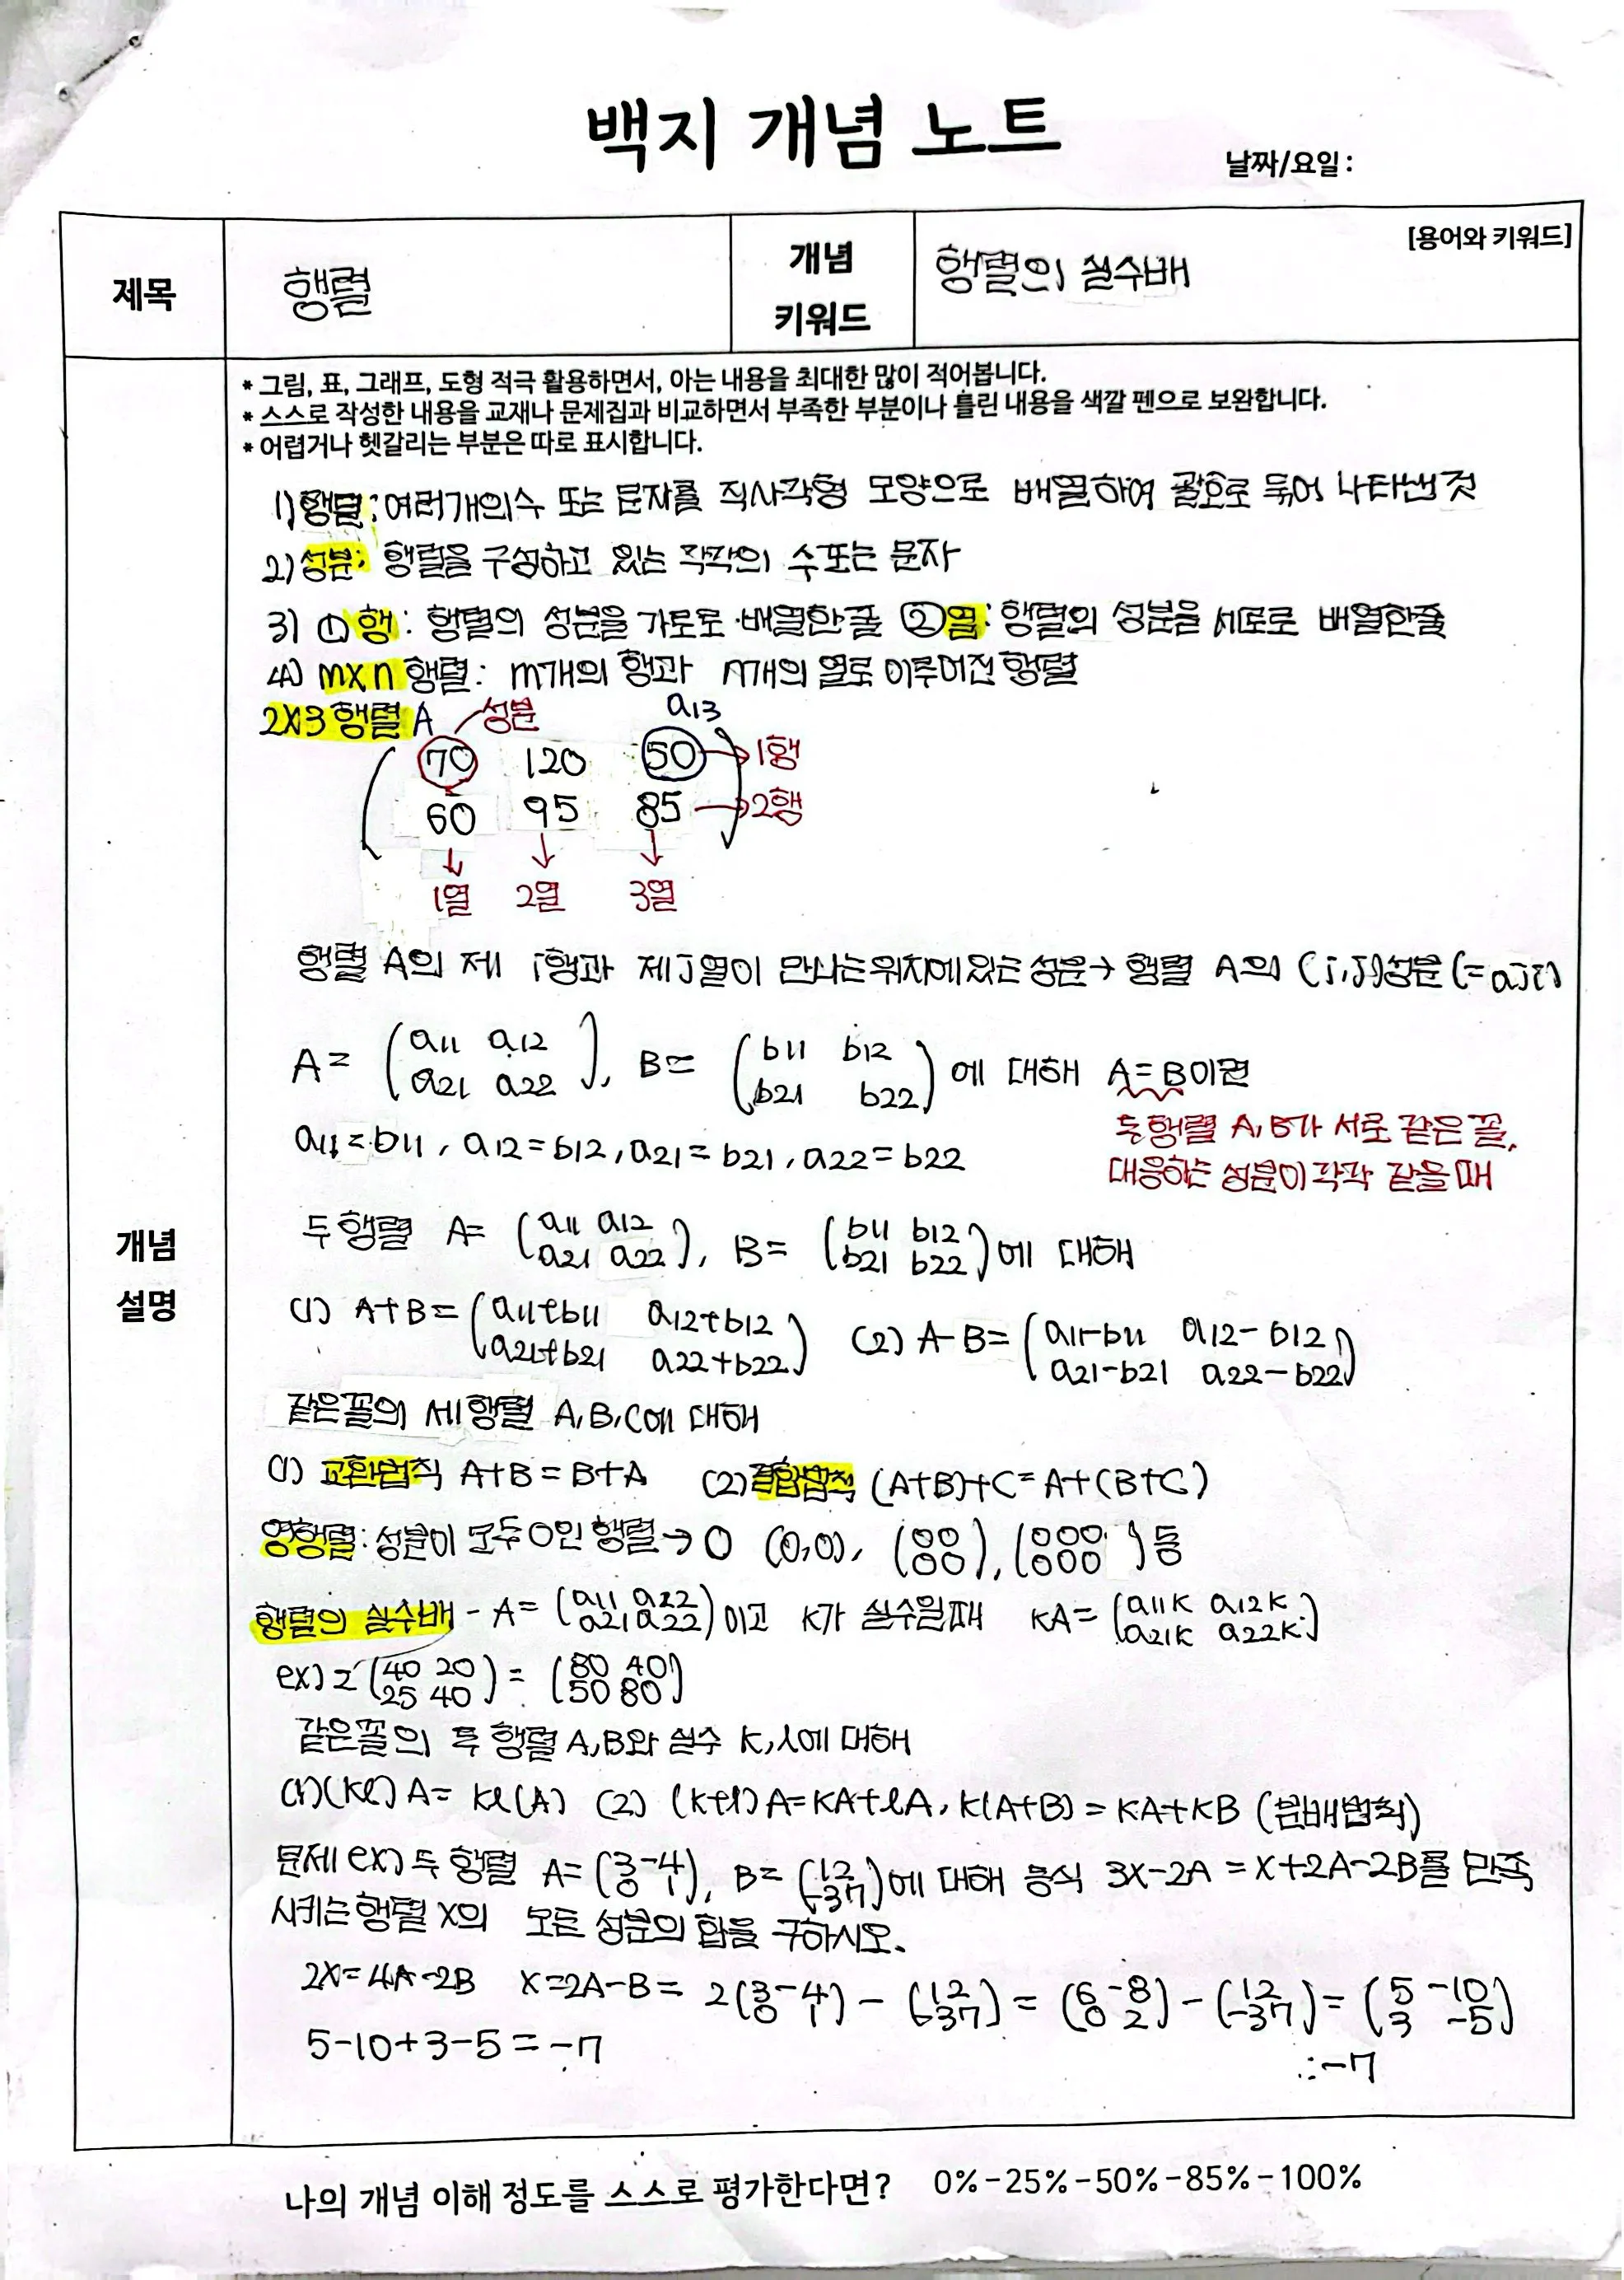 백지 개념 노트
날짜/요일:
제목
행렬
개념
키워드
행렬의 실수배
[용어와 키워드]
* 그림, 표, 그래프, 도형 적극 활용하면서, 아는 내용을 최대한 많이 적어봅니다.
* 스스로 작성한 내용을 교재나 문제집과 비교하면서 부족한 부분이나 틀린 내용을 색깔 펜으로 보완합니다.
* 어렵거나 헷갈리는 부분은 따로 표시합니다.
개념
설명
1) 행렬: 여러개의수 또는 문자를 직사각형 모양으로 배열하여 괄호로 묶어 나타낸 것
2) 성분: 행렬을 구성하고 있는 각각의 수또는 문자
3) ① 행: 행렬의 성분을 가로로 배열한줄 ② 열: 행렬의 성분을 세로로 배열한줄
4) m×n 행렬: m개의 행과 n개의 열로 이루어진 행렬
2×3 행렬 A 성분 a13
70 120 50 → 1행
60 95 85 → 2행
↓ ↓ ↓
1열 2열 3열
행렬 A의 제 i행과 제 j열이 만나는위치에있는 성분→ 행렬 A의 (i,j)성분 (=aji)
A= (a11 a12
a21 a22), B= (b11 b12
b21 b22) 에 대해 A=B이면
두행렬 A,B가 서로 같은 꼴,
대응하는 성분이 각각 같을 때
a11=b11, a12=b12, a21=b21, a22=b22
두행렬 A= (a11 a12
a21 a22), B= (b11 b12
b21 b22)에 대해
(1) A+B= (a11+b11 a12+b12
a21+b21 a22+b22) (2) A-B= (a11-b11 a12-b12
a21-b21 a22-b22)
같은꼴의 세행렬 A,B,C에 대해
(1) 교환법칙 A+B=B+A (2) 결합법칙 (A+B)+C=A+(B+C)
영행렬: 성분이 모두0인 행렬→ O (0,0), (00
00), (000
000) 등
행렬의 실수배 - A= (a11 a22
a21 a22)이고 K가 실수일때 KA= (a11K a12K
a21K a22K)
ex) 2(40 20
25 40) = (80 40
50 80)
같은꼴의 두 행렬 A,B와 실수 K,l에 대해
(1)(Kl)A= Kl(A) (2) (K+l)A=KA+lA, K(A+B)=KA+KB (분배법칙)
문제 ex) 두 행렬 A= (3 -4
0 1), B= (1 2
-3 7)에 대해 등식 3X-2A=X+2A-2B를 만족
시키는행렬 X의 모든 성분의 합을 구하시오.
2X=4A-2B X=2A-B= 2(3 -4
0 1) - (1 2
-3 7) = (6 -8
0 2) - (1 2
-3 7) = (5 -10
3 -5)
5-10+3-5=-7
∴-7
나의 개념 이해 정도를 스스로 평가한다면? 0%-25%-50%-85%-100%